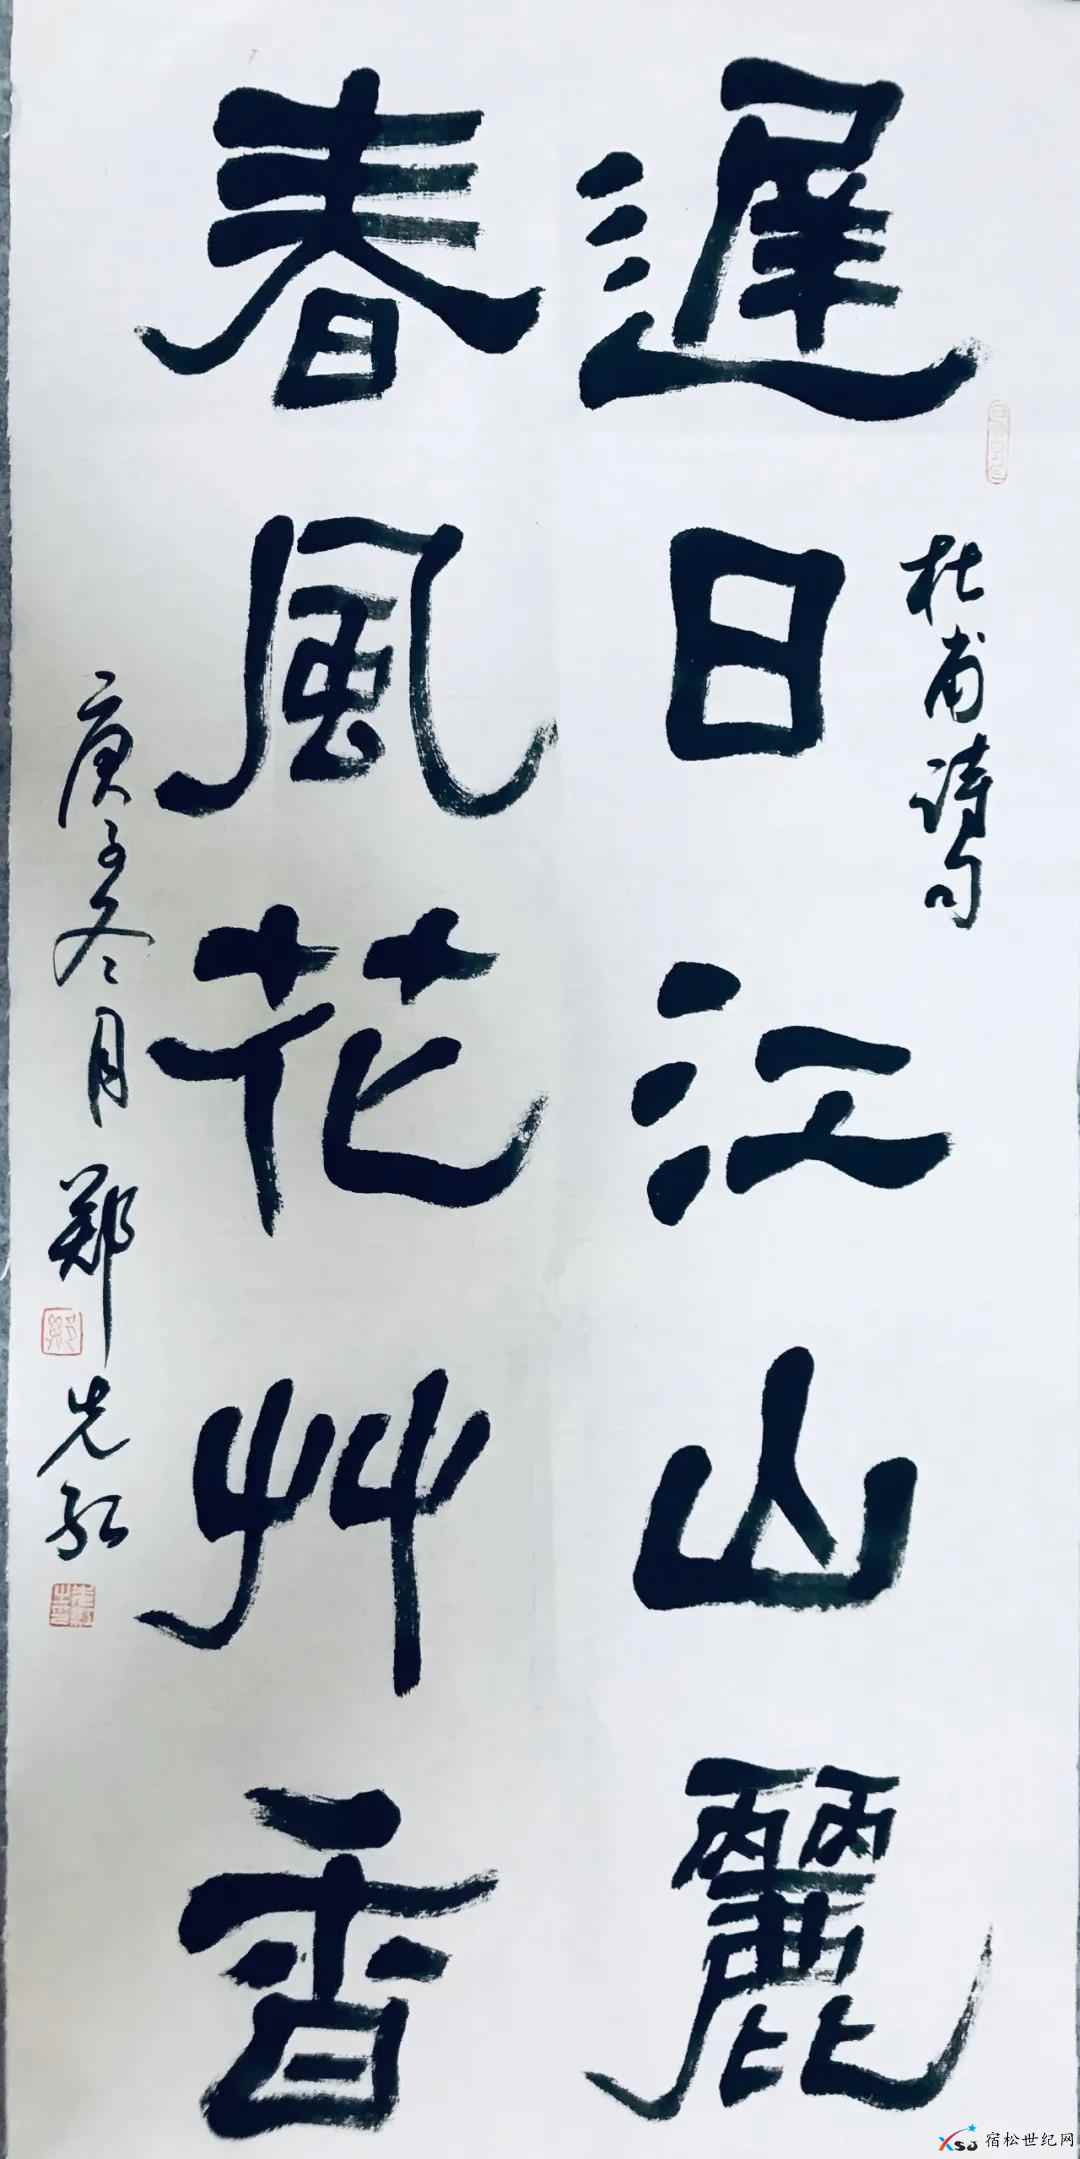 遲日江山麗
杜甫詩句
春風花艸香
庚子冬月鄭先弘
XSJ 宿松世纪网